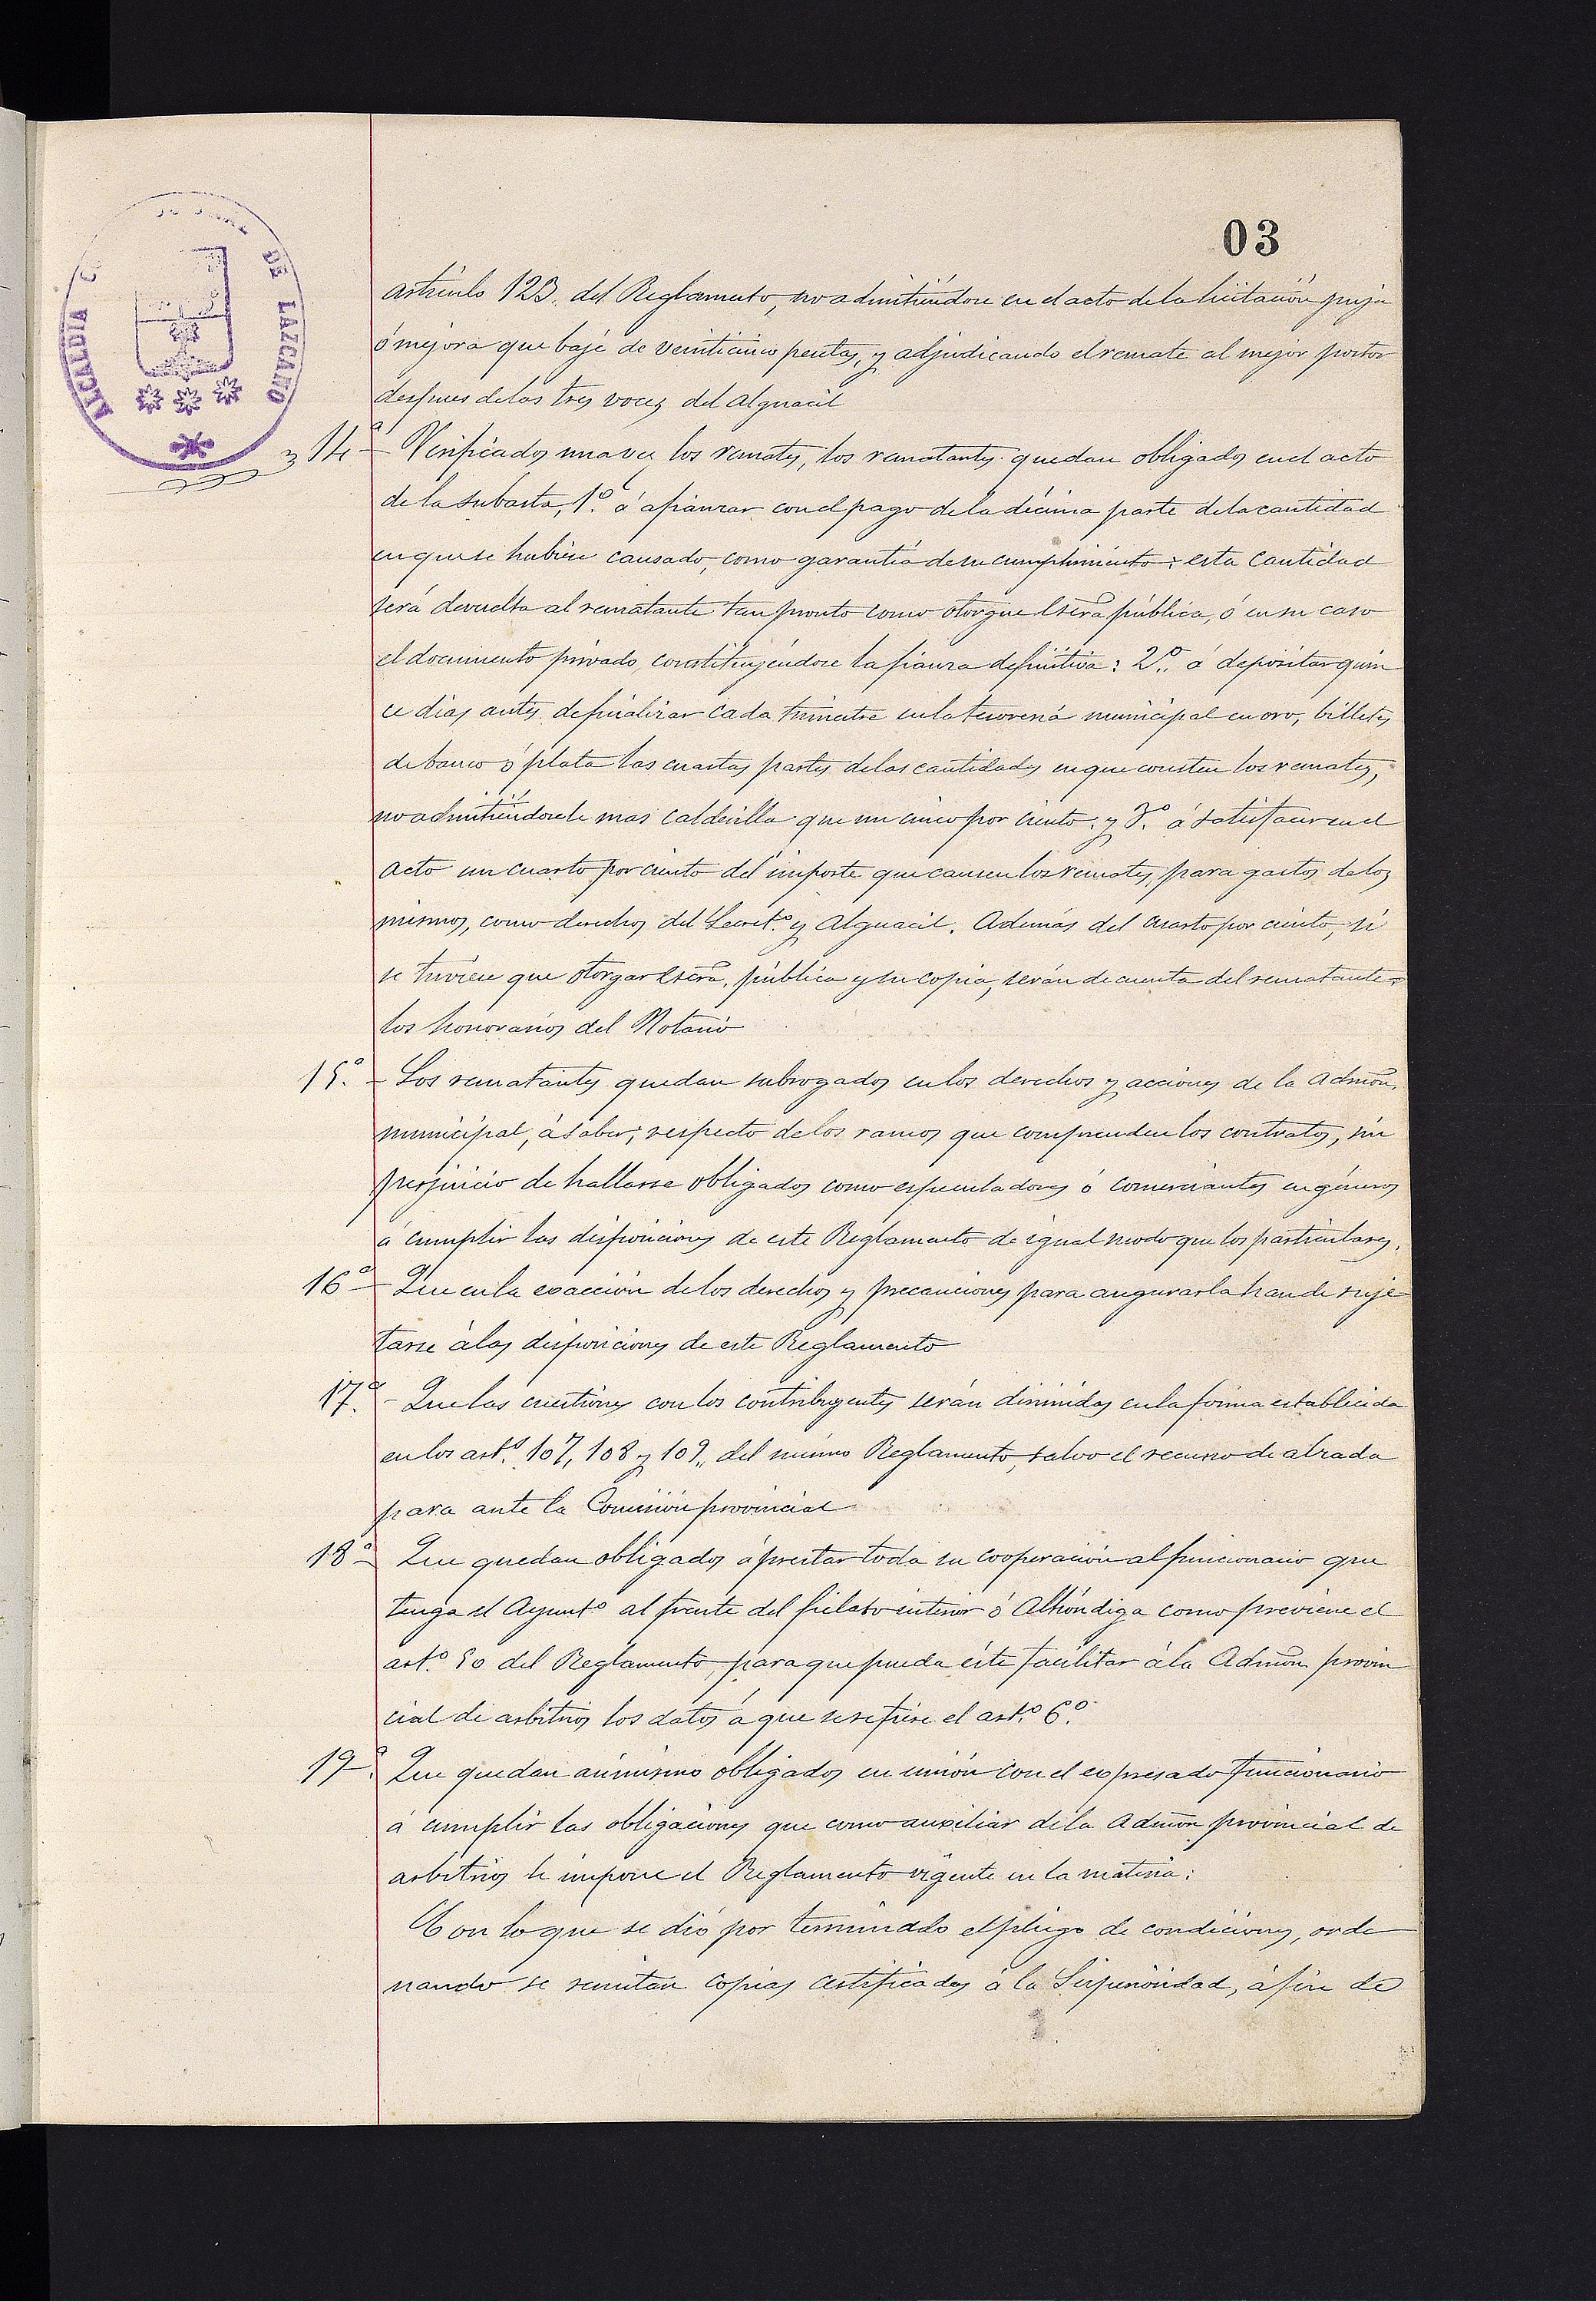 03
ALCALDÍA DE LAZCANO
artículo 123. del Reglamento, no admitiéndose en el acto de la licitación puja
ó mejora que baje de veinticinco pesetas, y adjudicando el remate al mejor postor
despues de las tres voces del alguacil
14ª - Verificados una vez los remates, los rematantes quedan obligados en el acto
de la subasta, 1.º á afianzar con el pago de la décima parte de la cantidad
en que se hubiese causado, como garantía de su cumplimiento: esta cantidad
será devuelta al rematante tan pronto como otorgue escra pública, ó en su caso
el documento privado, constituyéndose la fianza definitiva: 2.º á depositar quin
ce dias antes de finalizar cada trimestre en la tesorería municipal en oro, billetes
de banco ó plata las cuartas partes de las cantidades en que consten los remates,
no admitiéndosele mas calderilla que un cinco por ciento; y 3.º á satisfacer en el
acto un cuarto por ciento del importe que causen los remates, para gastos de los
mismos, como derechos del Secret.º y Alguacil. Además del cuarto por ciento, si
se tuviese que otorgar escra. pública y su copia, serán de cuenta del rematante
los honorarios del Notario
15.ª - Los rematantes quedan subrogados en los derechos y acciones de la admon.
municipal, á saber; respecto de los ramos que comprenden los contratos, sin
perjuicio de hallarse obligados como especuladores ó comerciantes en géneros
á cumplir las disposiciones de este Reglamento de igual modo que los particulares.
16ª - Que en la exacción de los derechos y precauciones para asegurarla han de suje-
tarse á las disposiciones de este Reglamento
17.ª - Que las cuestiones con los contribuyentes serán dirimidas en la forma establecida
en los art.s 107, 108 y 109., del mismo Reglamento, salvo el recurso de alzada
para ante la Comisión provincial
18ª - Que quedan obligados á prestar toda su cooperación al funcionario que
tenga el Ayunt.º al frente del fielato interior ó Alhóndiga como previene el
art.º 50 del Reglamento, para que pueda éste facilitar á la Admon provin
cial de arbitrios los datos á que se refiere el art.º 6.º
19.ª Que quedan asimismo obligados en unión con el expresado funcionario
á cumplir las obligaciones que como auxiliar de la admon provincial de
arbitrios le impone el Reglamento vigente en la materia:
Con lo que se dió por terminado el pliego de condiciones, orde
nando se remitan copias certificadas á la Superioridad, á fin de